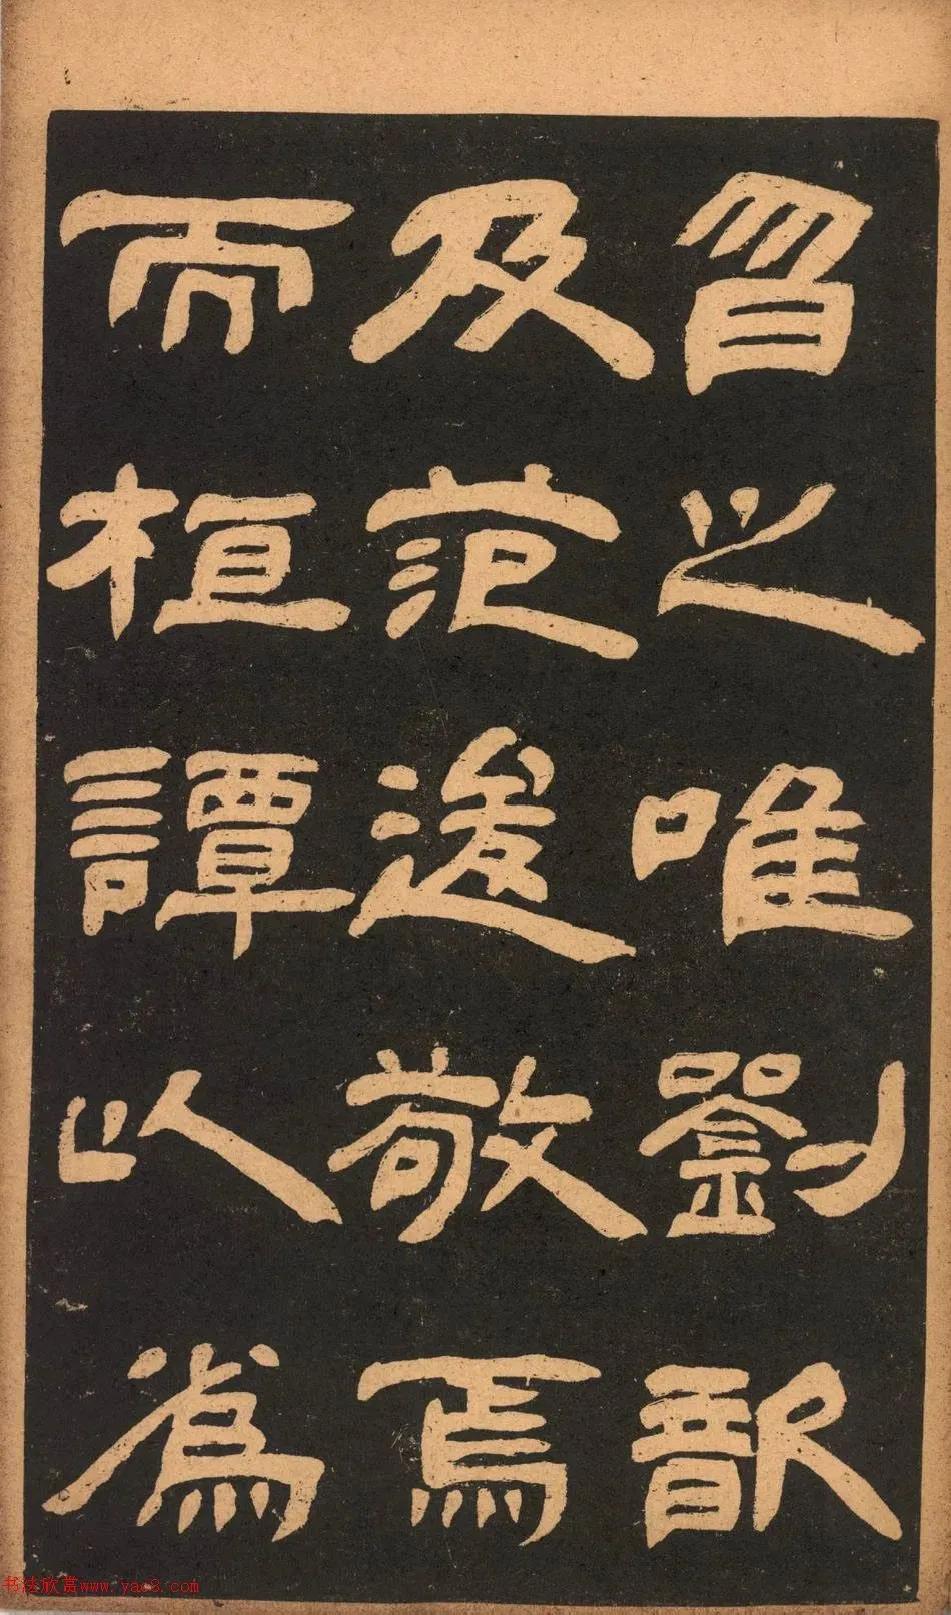 曶之唯劉歆
及范逡敬焉
而桓譚以為
书法欣赏www.yac8.com